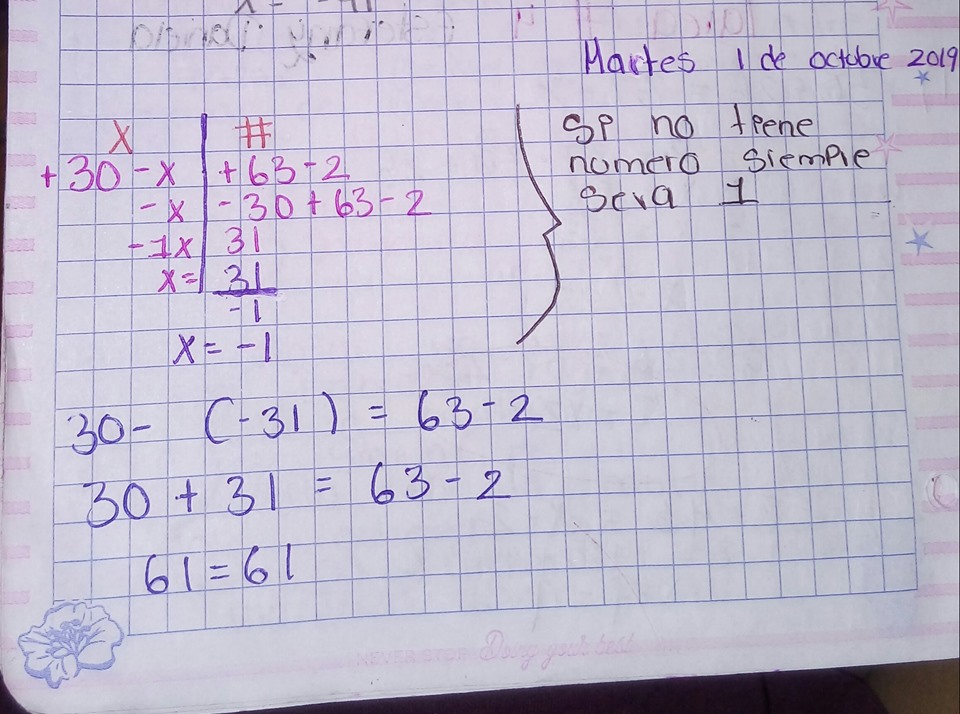 Martes 1 de octubre 2019
X #
+30 -x +63-2
-x -30+63-2
-1x 31
x= 31
-1
x = -1
Si no tiene
numero siempre
sera 1
30- (-31) = 63-2
30 + 31 = 63-2
61 = 61
NEVER STOP Doing your best